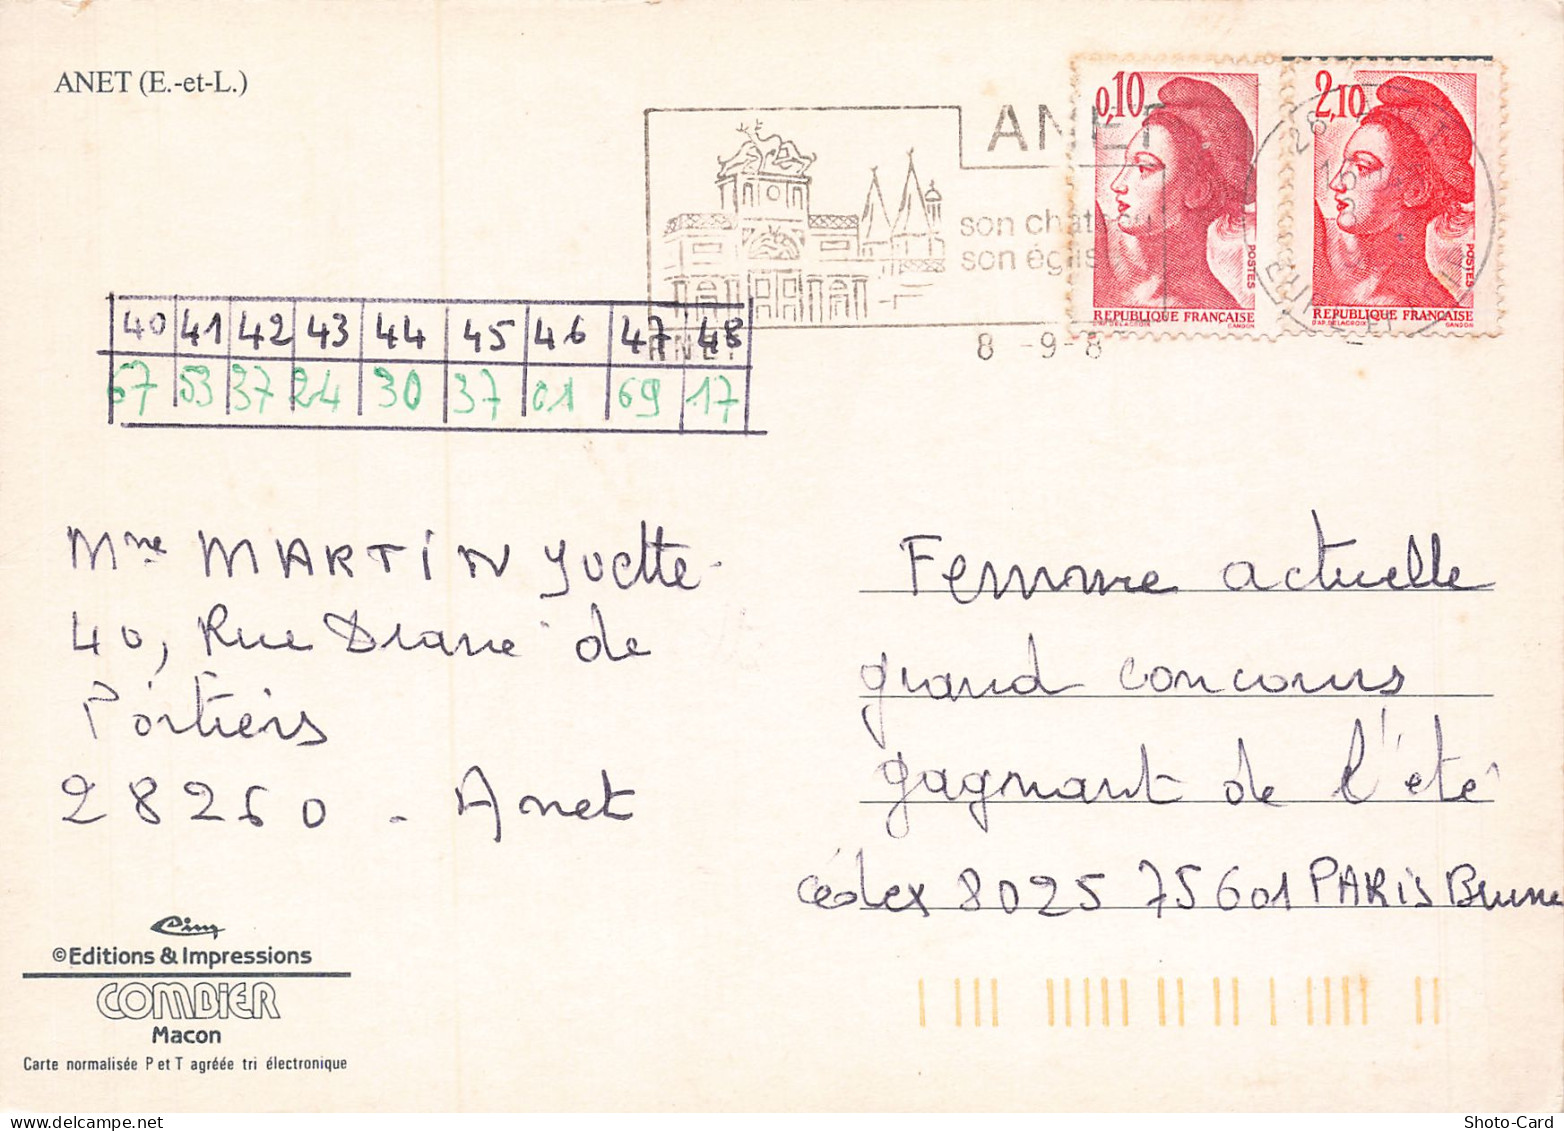 ANET (E.-et-L.)
0,10
2,10
ANET
son château
son église
POSTES
POSTES
REPUBLIQUE FRANÇAISE
REPUBLIQUE FRANÇAISE
D'AP. DELACROIX GANDON
D'AP. DELACROIX GANDON
8 -9-8
ANET
40 41 42 43 44 45 46 47 48
67 53 37 24 30 37 01 69 17
Mme MARTIN Yvette
40, Rue Diane de
Poitiers
28260 - Anet
Femme actuelle
grand concours
gagnant de l'été
cédex 8025 75601 PARIS Brune
Cim
©Editions & Impressions
COMBIER
Macon
Carte normalisée P et T agréée tri électronique
Shoto-Card